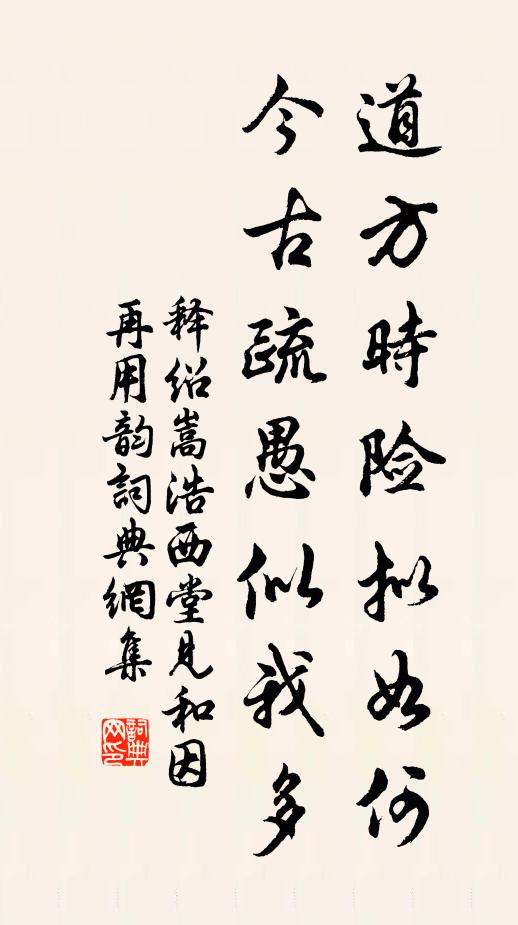 道方時险拟如何
今古疏愚似我多
释绍嵩浩西堂见和因
再用韵詞典網集
詞典网印